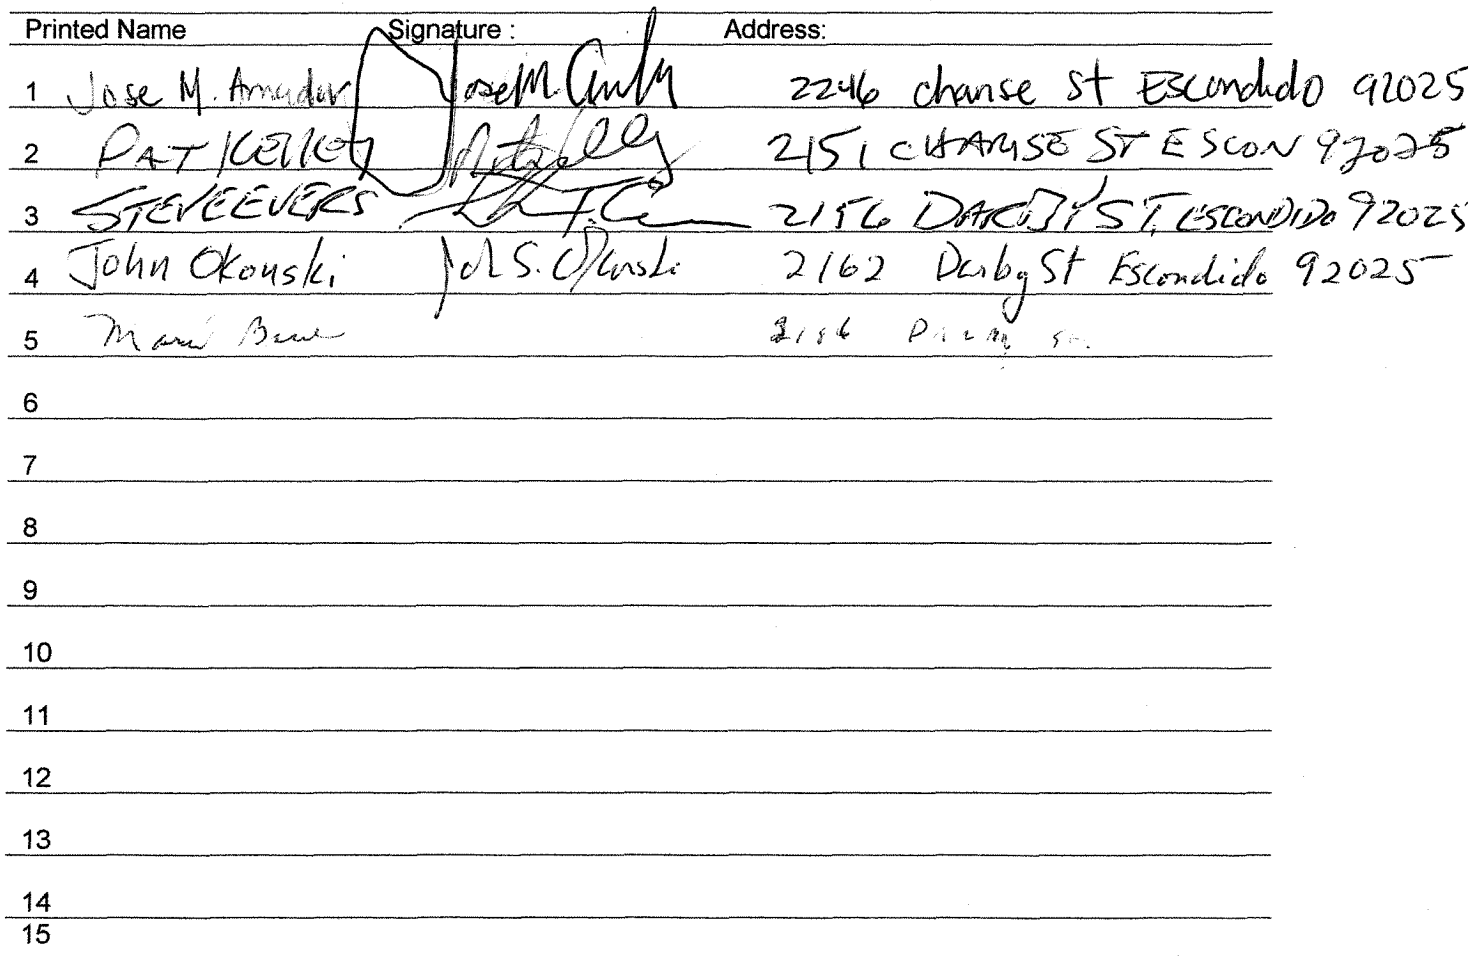 Printed Name Signature : Address:
1 Jose M. Amador Jose M. 2246 charise st Escondido 92025
2 PAT KELLEY 2151 CHARISE ST ESCON 92025
3 STEVE EVERS 2156 DARBY ST, ESCONDIDO 92025
4 John Okonski John S. Okonski 2162 Darby St Escondido 92025
5
6
7
8
9
10
11
12
13
14
15